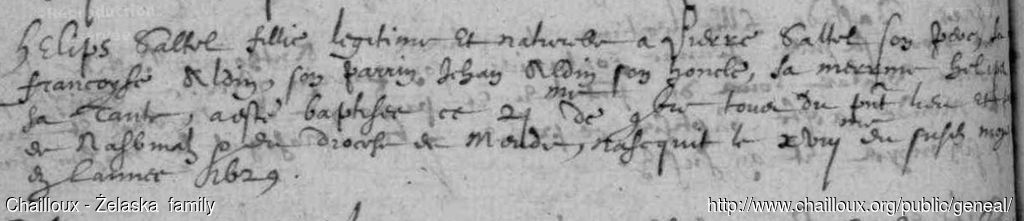 Helips Saltel fillie legitime et naturelle a Pierre Saltel son pere, la
francoyse Aldin, son parrin Jehan Aldin son honcle, sa merrine helips
sa Tante, a esté baptisee ce 21 me de 9bre tour du pnt lieu et
de Nasbinalz du diocese de Mende, nasequit le xviij me du susd moys
de lannee 1629.
Chailloux - Żelaska family
http://www.chailloux.org/public/geneal/